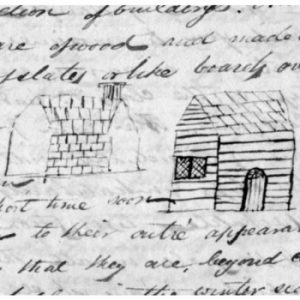 of buildings.
are of wood and made
slates or like boards ov
short time soon
to their outré appeara
that they are, beyond
in the winter